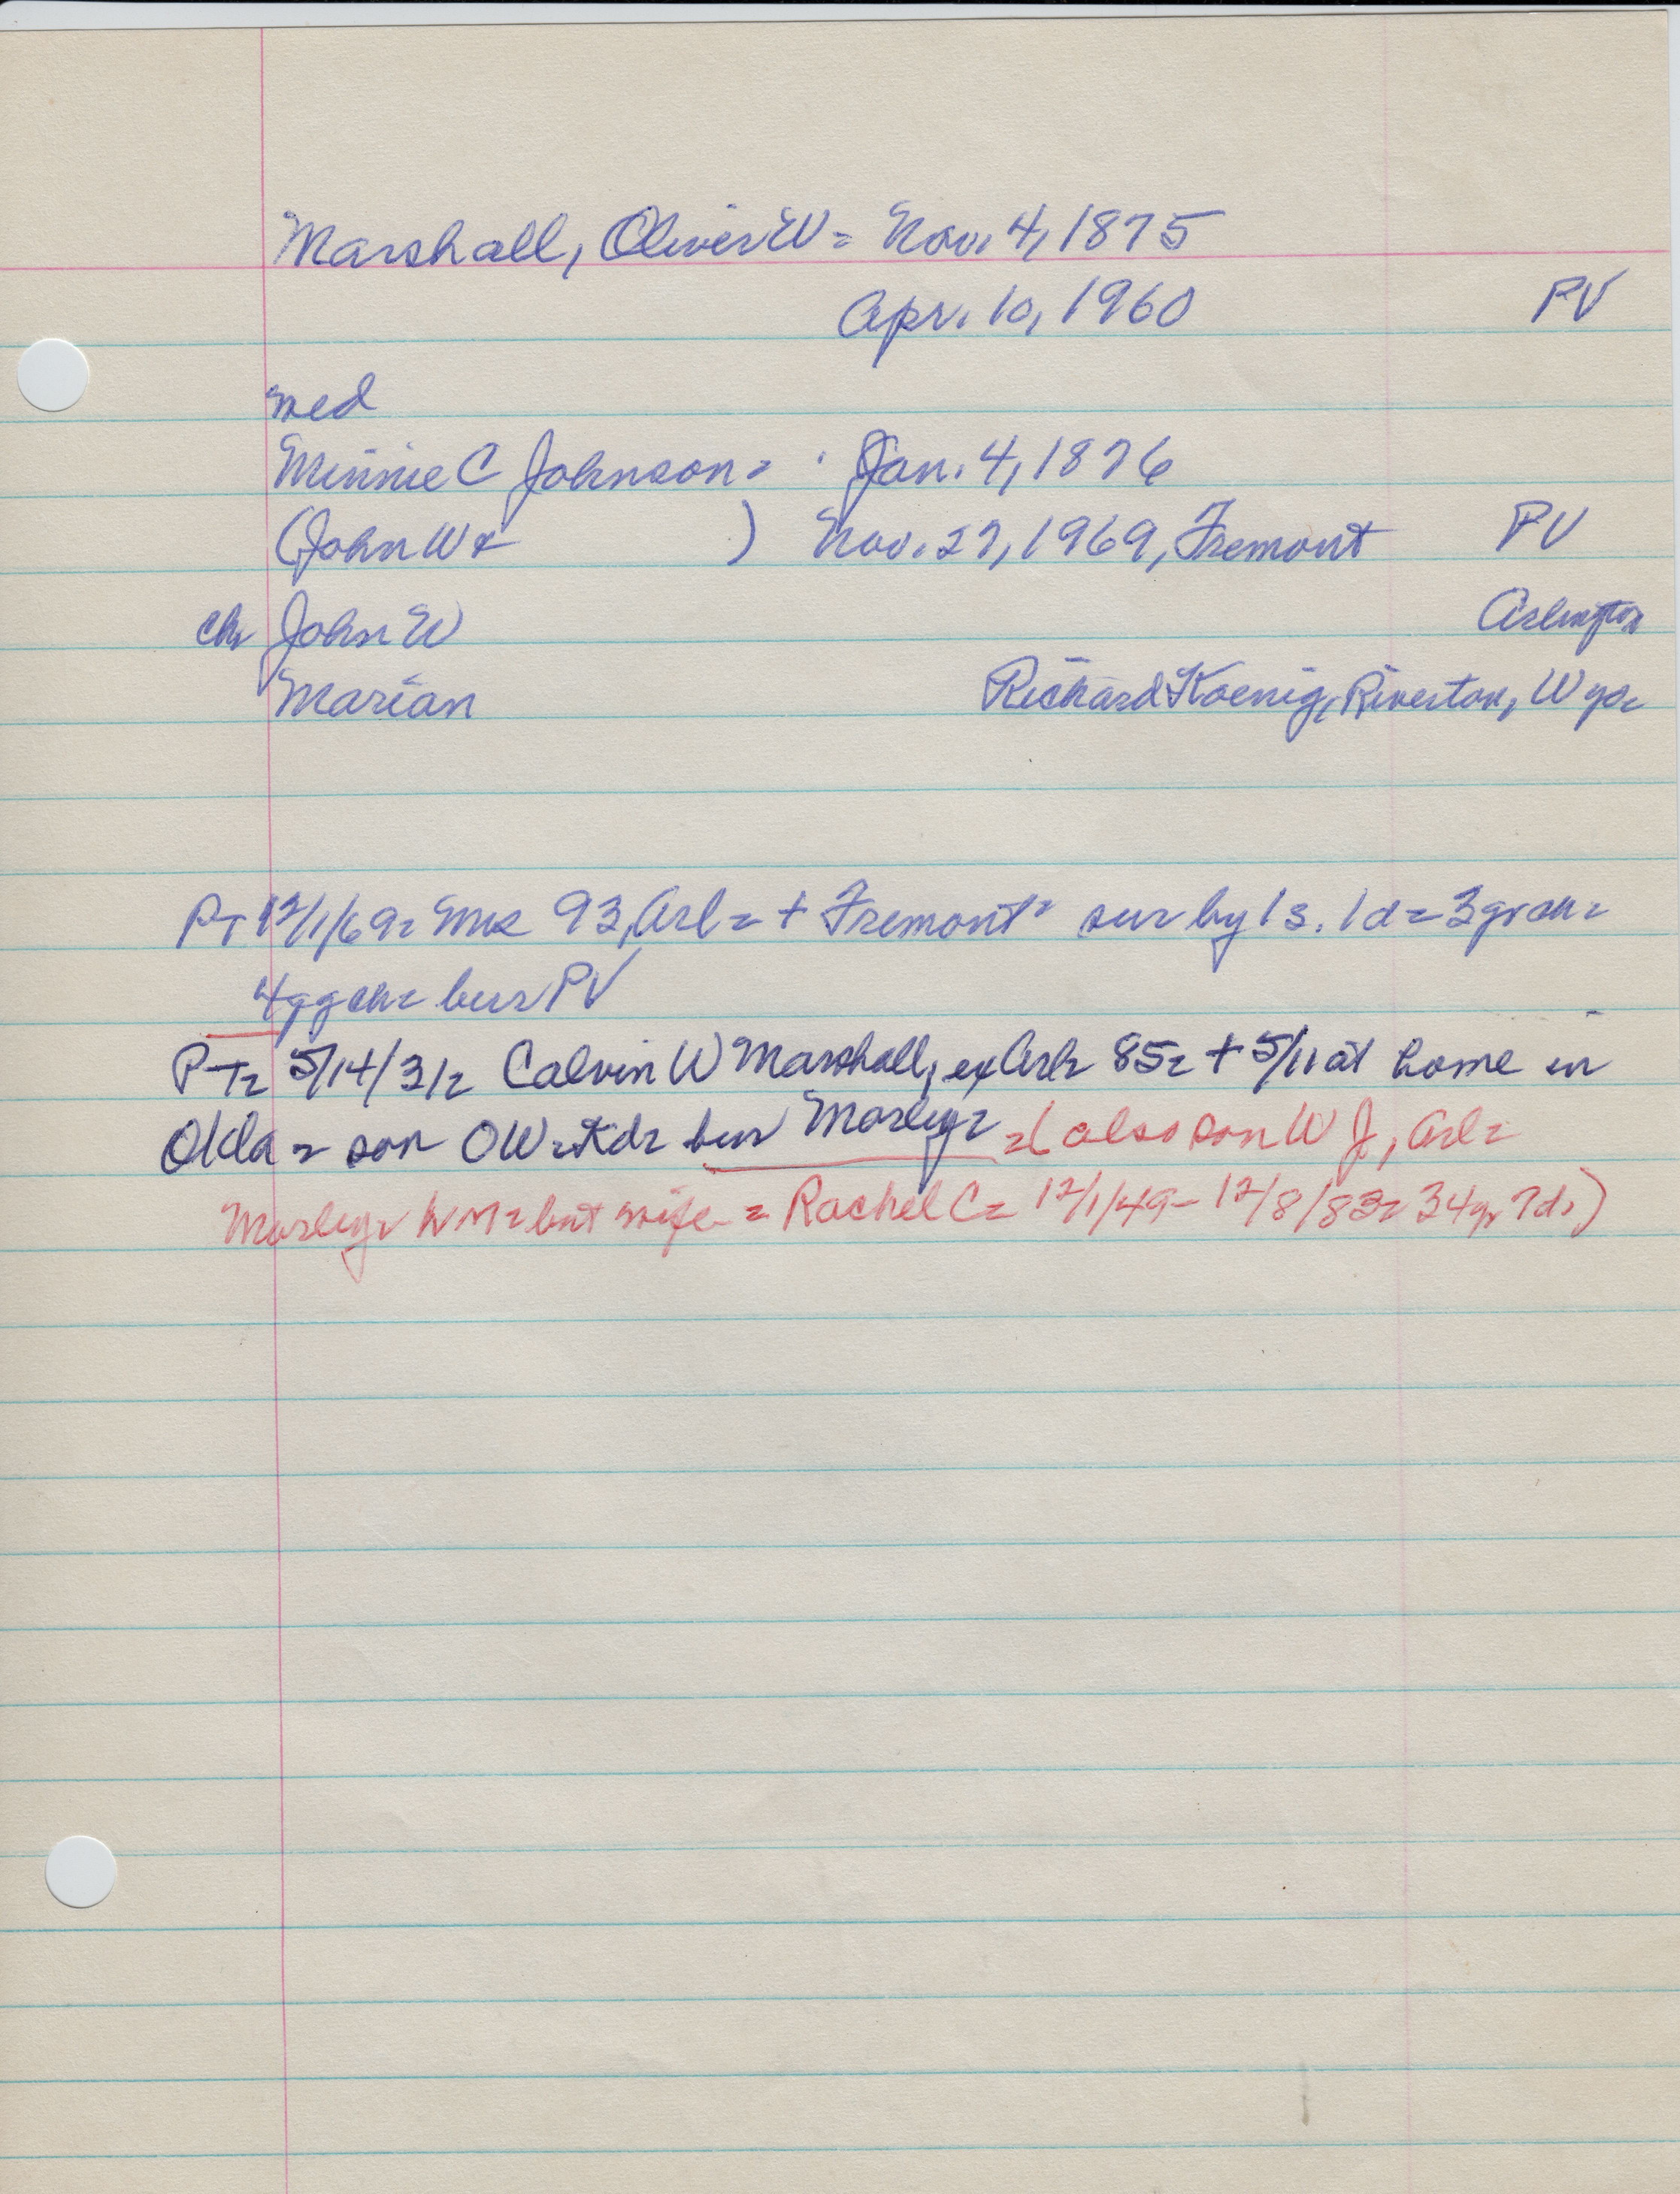 Marshall, Oliver W = Nov. 4, 1875
Apr. 10, 1960 PV
med
Minnie C Johnson = Jan. 4, 1876
(John W & ) Nov. 27, 1969, Fremont PV
ch John W Arlington
Marian Richard Koenig, Riverton, Wyo =
PT 12/1/69 = Mrs 93, Arl = + Fremont = sur by 1 s. 1 d = 3 gr ch =
4 ggch = bur PV
PT = 5/14/31 = Calvin W Marshall, ex Arl = 85 = + 5/11 at home in
Okla = son OW = + d = bur Morley = = (also son W J, Arl =
Morley = W M = but wife = Rachel C = 12/1/49 - 12/8/83 = 34 yr 7 d.)